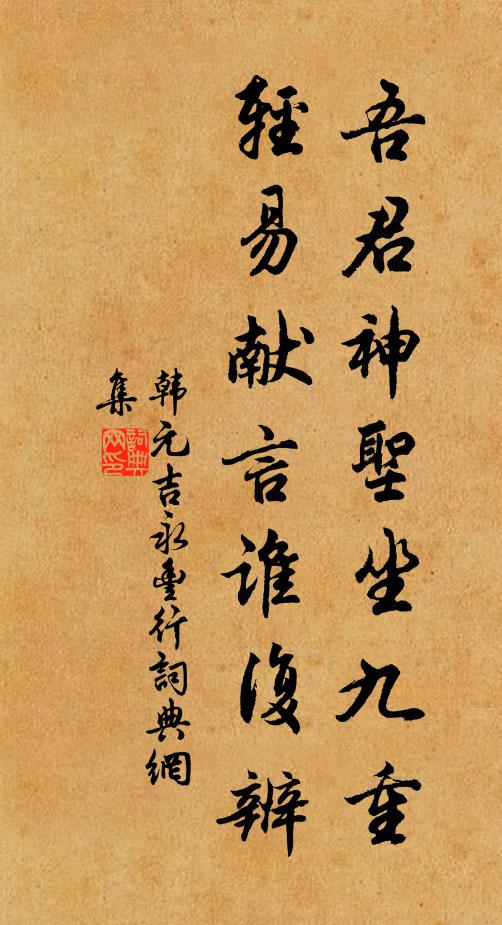 吾君神聖坐九重
輕易献言誰復辨
韩元吉永豐行詞典網
集
詞典網印